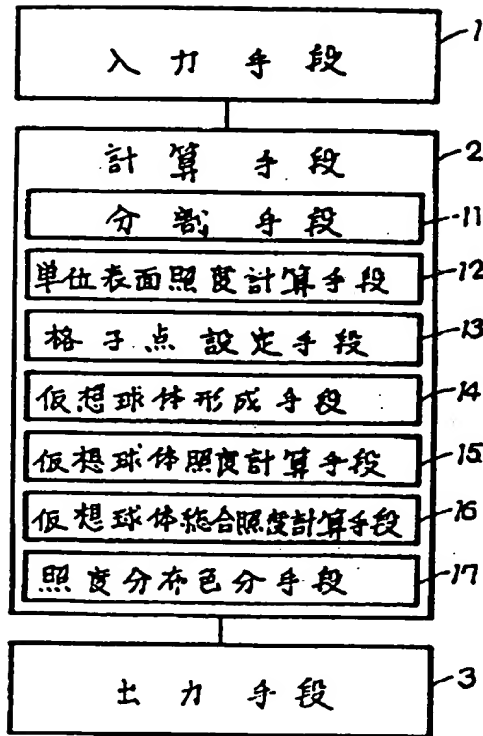 入力手段 1
計算手段 2
分割手段 11
単位表面照度計算手段 12
格子点設定手段 13
仮想球体形成手段 14
仮想球体照度計算手段 15
仮想球体総合照度計算手段 16
照度分布色分手段 17
出力手段 3